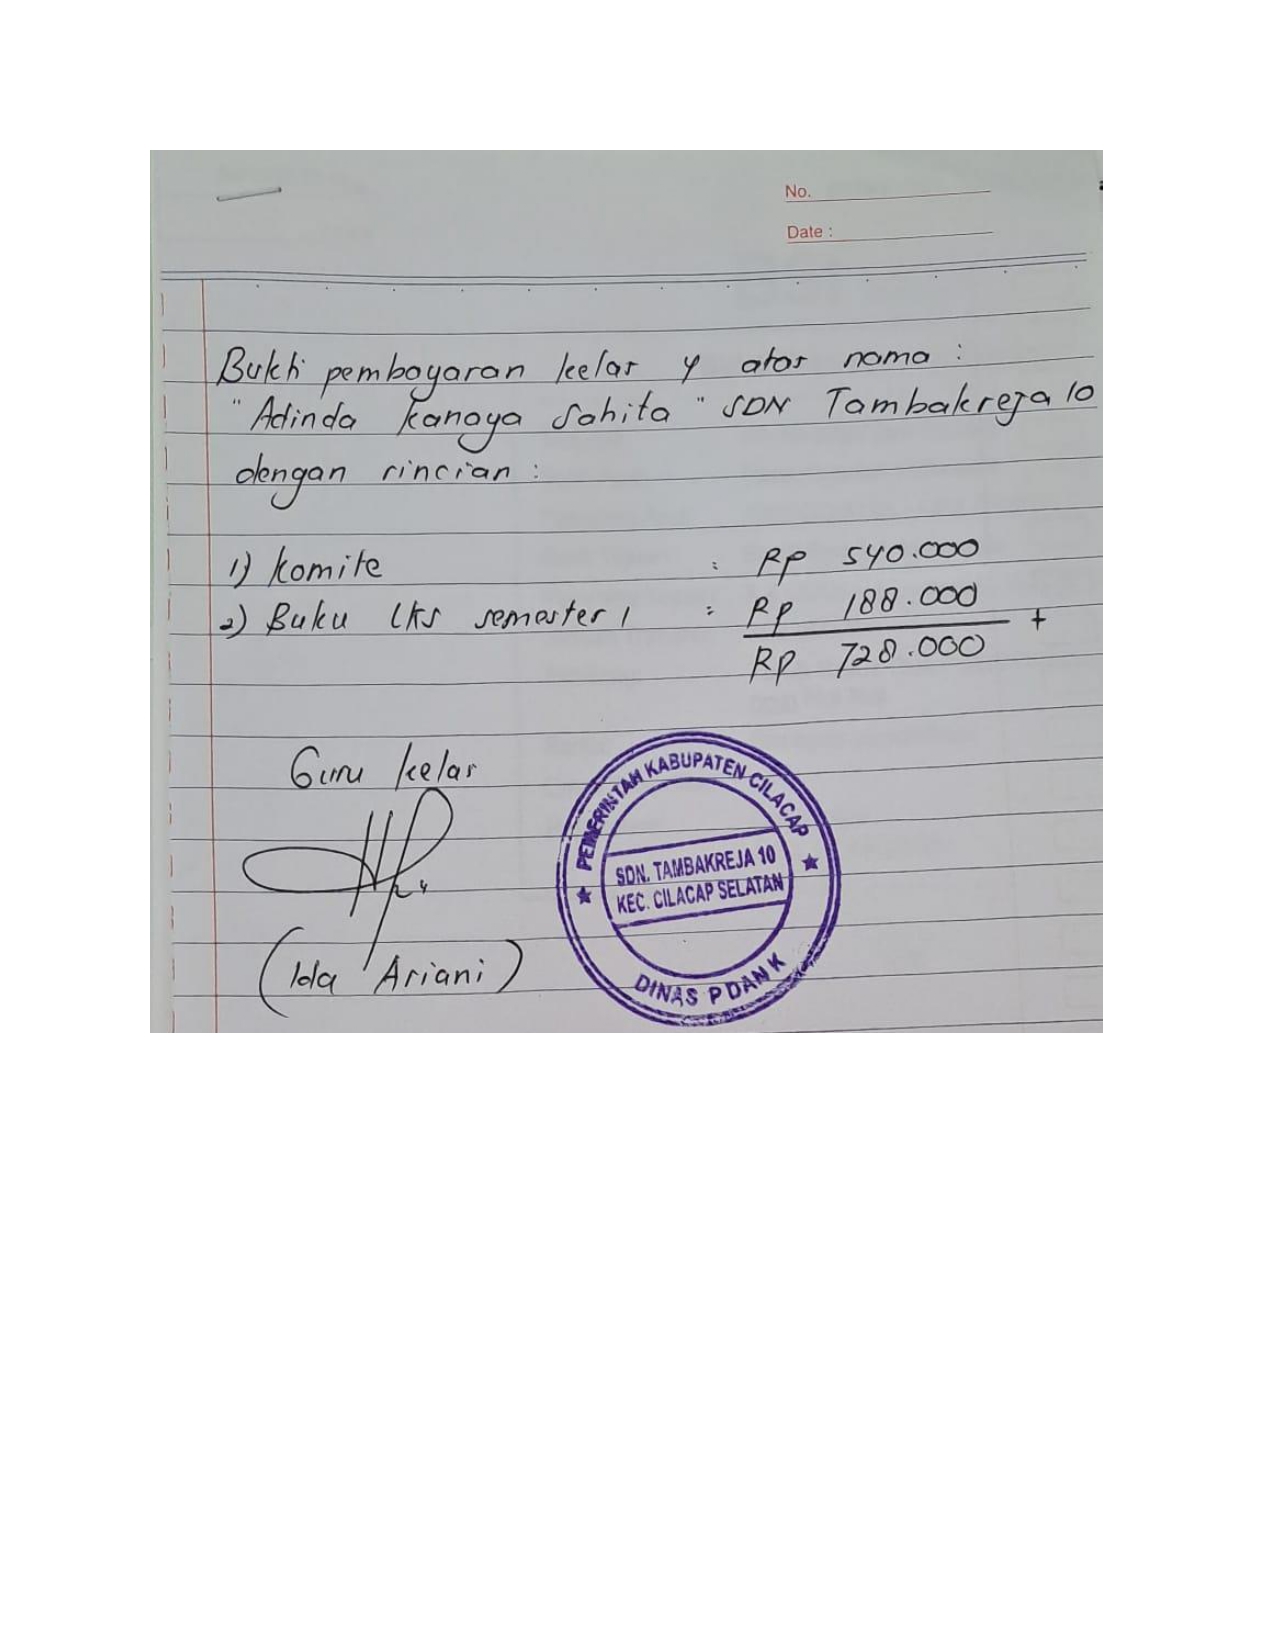 No.
Date :
Bukti pembayaran kelas 4 atas nama :
"Adinda kanaya Sahita" SDN Tambakreja 10
dengan rincian :
1) komite : Rp 540.000
2) Buku LKS semester 1 : Rp 188.000 +
Rp 728.000
Guru kelas
(Ida Ariani)
PEMERINTAH KABUPATEN CILACAP
SDN. TAMBAKREJA 10
KEC. CILACAP SELATAN
DINAS P DAN K